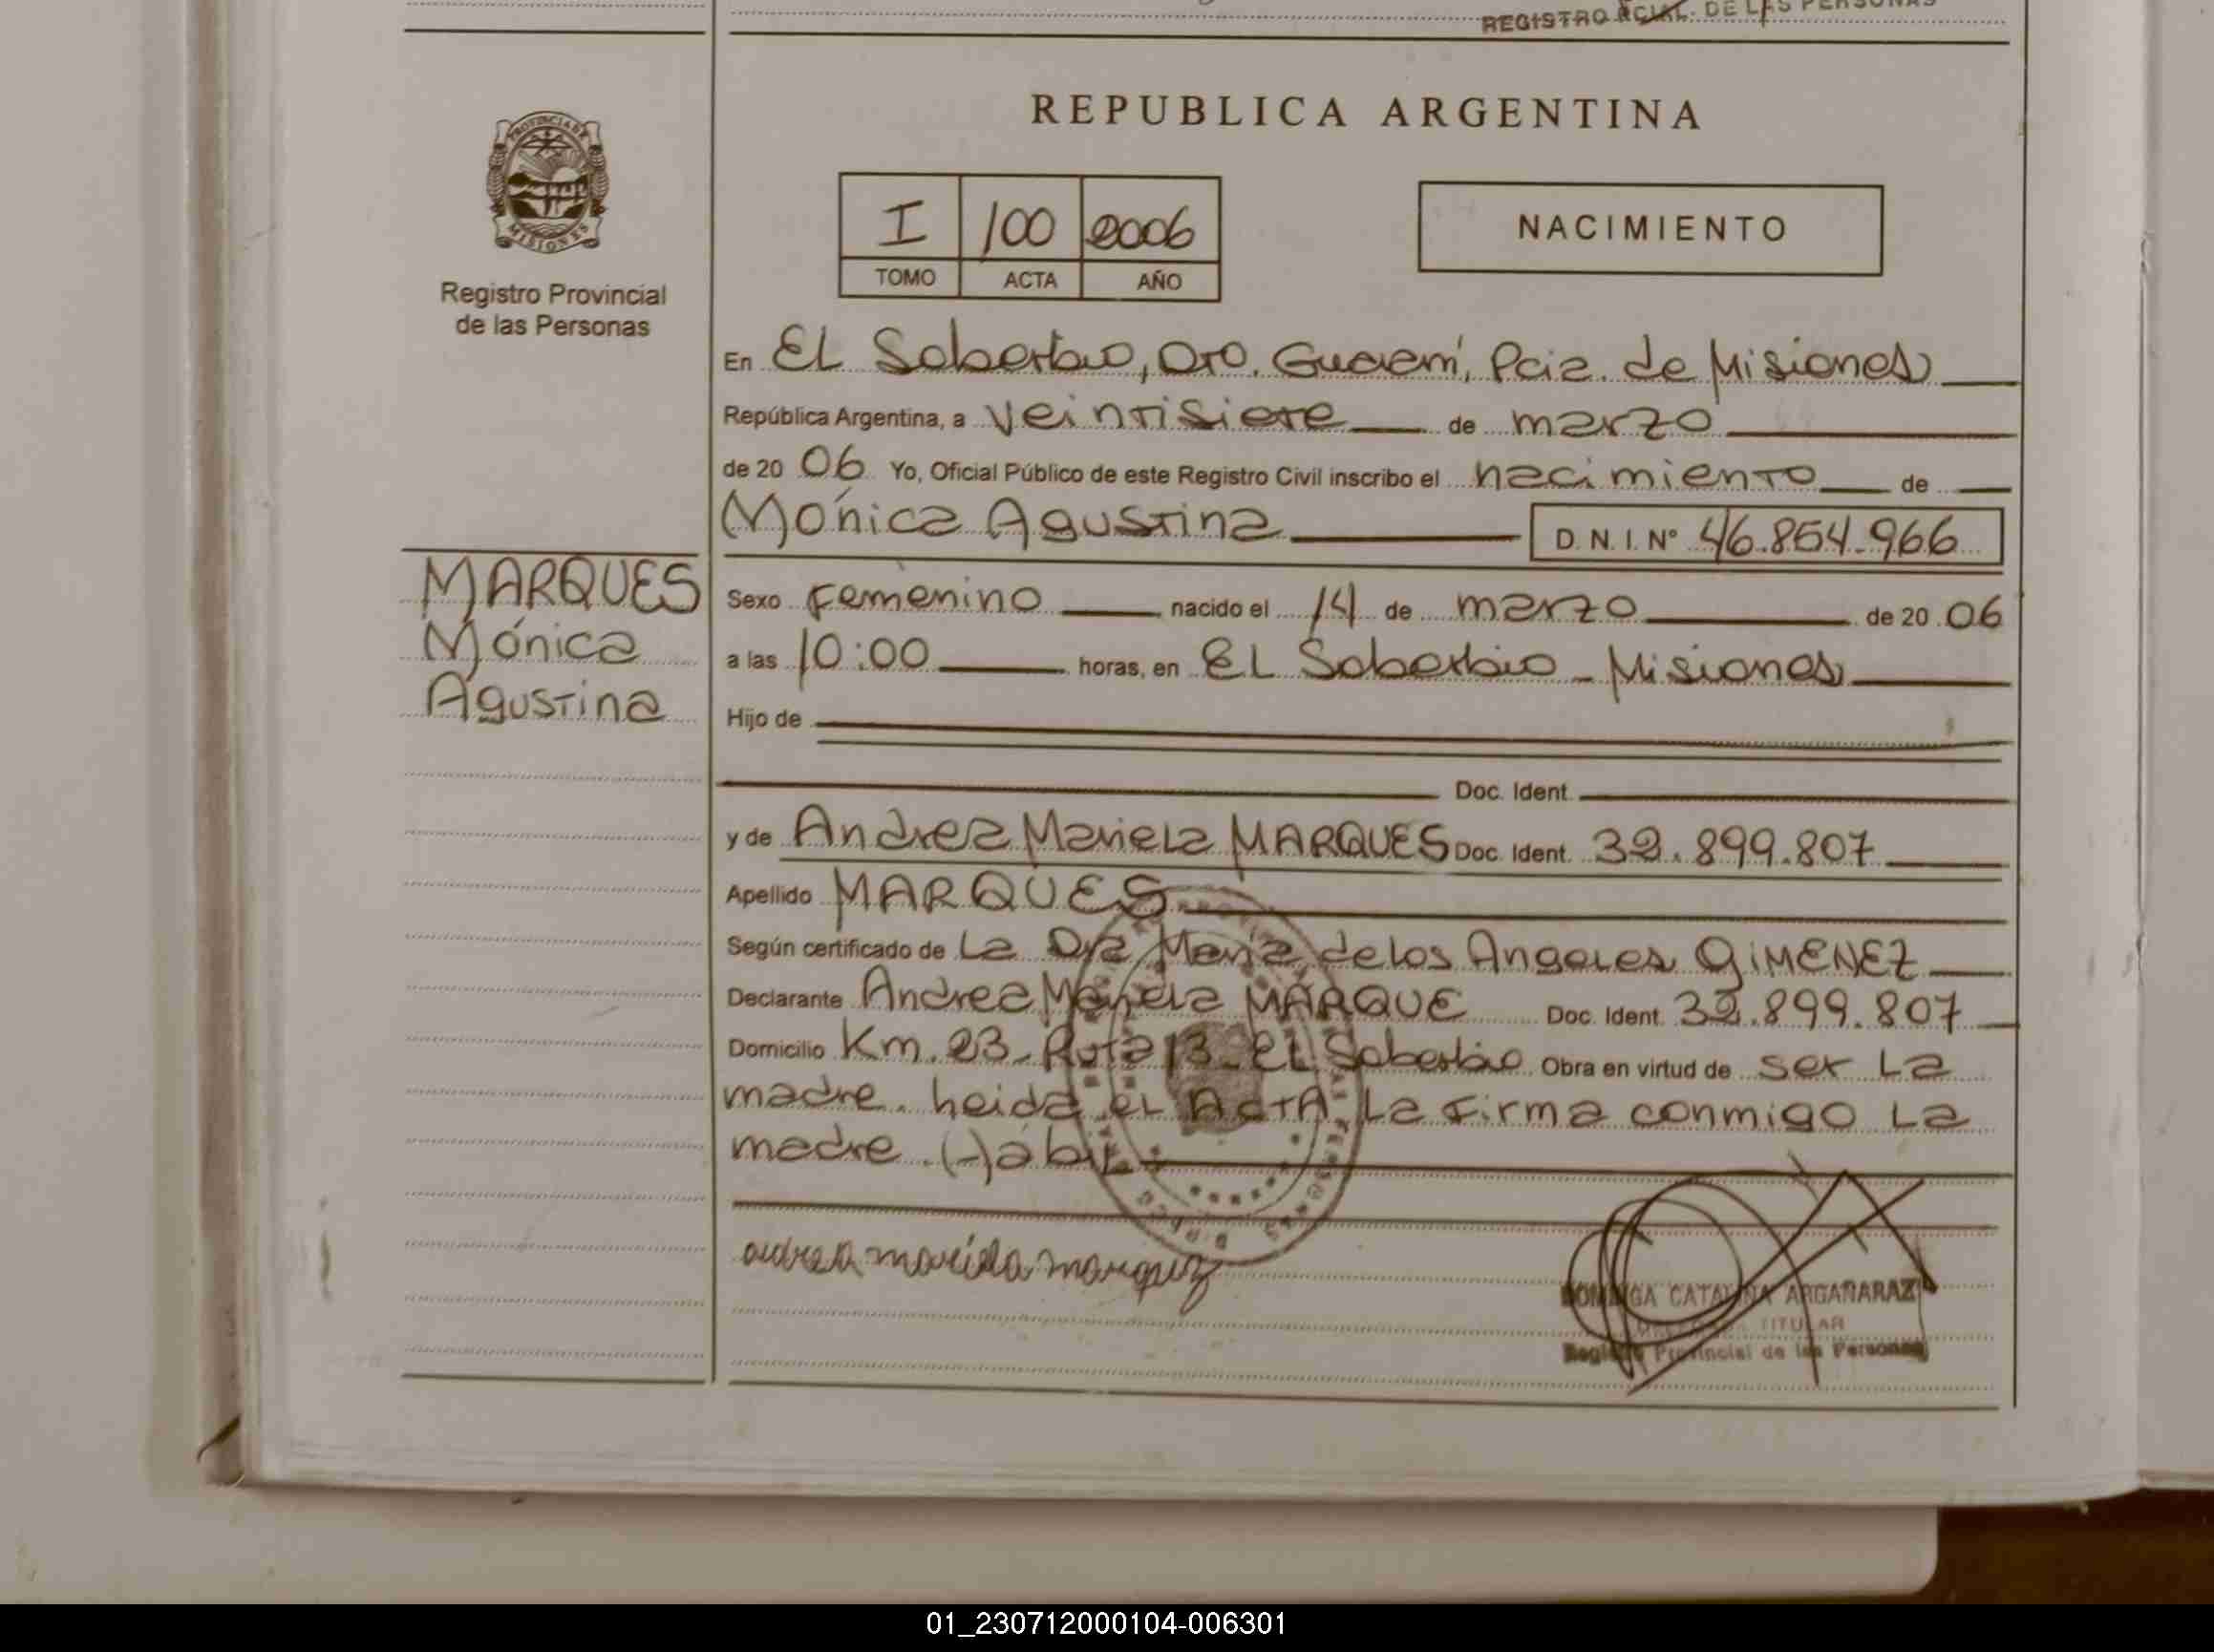 REGISTRO PCIAL. DE LAS PERSONAS
PROVINCIA DE
MISIONES
Registro Provincial
de las Personas
REPUBLICA ARGENTINA
I 100 2006
TOMO ACTA AÑO
NACIMIENTO
En EL Soberbio, Dto. Guaraní, Pcia. de Misiones
República Argentina, a veintisiete de marzo
de 20 06 Yo, Oficial Público de este Registro Civil inscribo el nacimiento de
Mónica Agustina D.N.I. Nº 46.854.966
MARQUES
Mónica
Agustina
Sexo Femenino nacido el 14 de marzo de 20 06
a las 10:00 horas, en EL Soberbio - Misiones
Hijo de
Doc. Ident.
y de Andrea Mariela MARQUES Doc. Ident. 32.899.807
Apellido MARQUES
Según certificado de La Dra María de los Angeles GiMENEZ
Declarante Andrea Mariela MARQUE Doc. Ident. 32.899.807
Domicilio Km. 23 - Ruta 13 - EL Soberbio Obra en virtud de ser La
madre. Leida el ActA La firma conmigo La
madre. Hábil
andrea mariela marquez
DOMINGA CATALINA ARGAÑARAZ
TITULAR
Registro Provincial de las Personas
01_230712000104-006301